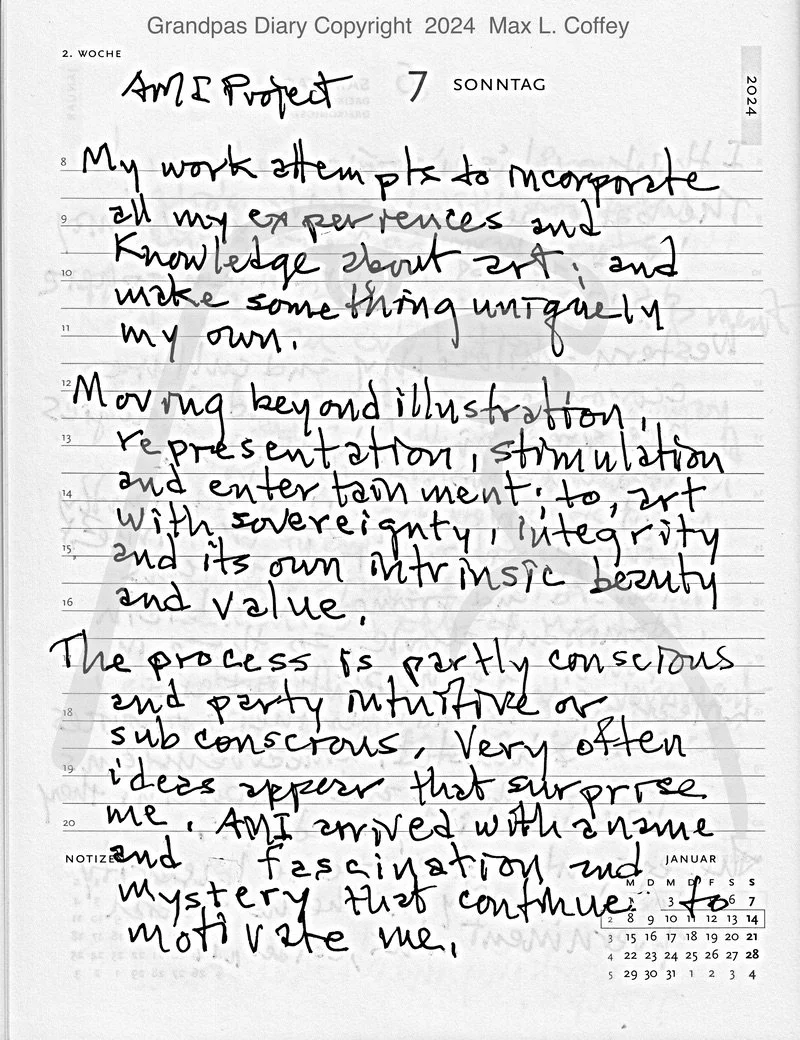 Grandpas Diary Copyright 2024 Max L. Coffey
2. WOCHE
AMI Project 7 SONNTAG
2024
8 My work attempts to incorporate
9 all my experiences and
Knowledge about art; and
10 make something uniquely
11 my own.
12 Moving beyond illustration,
13 representation, stimulation
14 and entertainment; to, art
with sovereignty, integrity
15 and its own intrinsic beauty
16 and value.
The process is partly conscious
18 and party intuitive or
subconscious. Very often
19 ideas appear that surprise
20 me. AMI arrived with a name
NOTIZE and fascination and JANUAR
mystery that continue. to
motivate me.
M D M D F S S
3 6 7
2 8 9 10 11 12 13 14
3 15 16 17 18 19 20 21
4 22 23 24 25 26 27 28
5 29 30 31 1 2 3 4